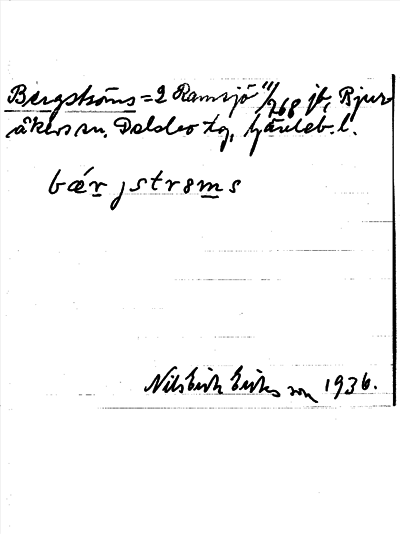 Bergströms = 2 Ramsjö 11/268 jb, Bjur-
åkers sn, Delsbo tg, Gävleb. l.
bær̲jstrɵm̲s
Nils Erik Eriksson 1936.